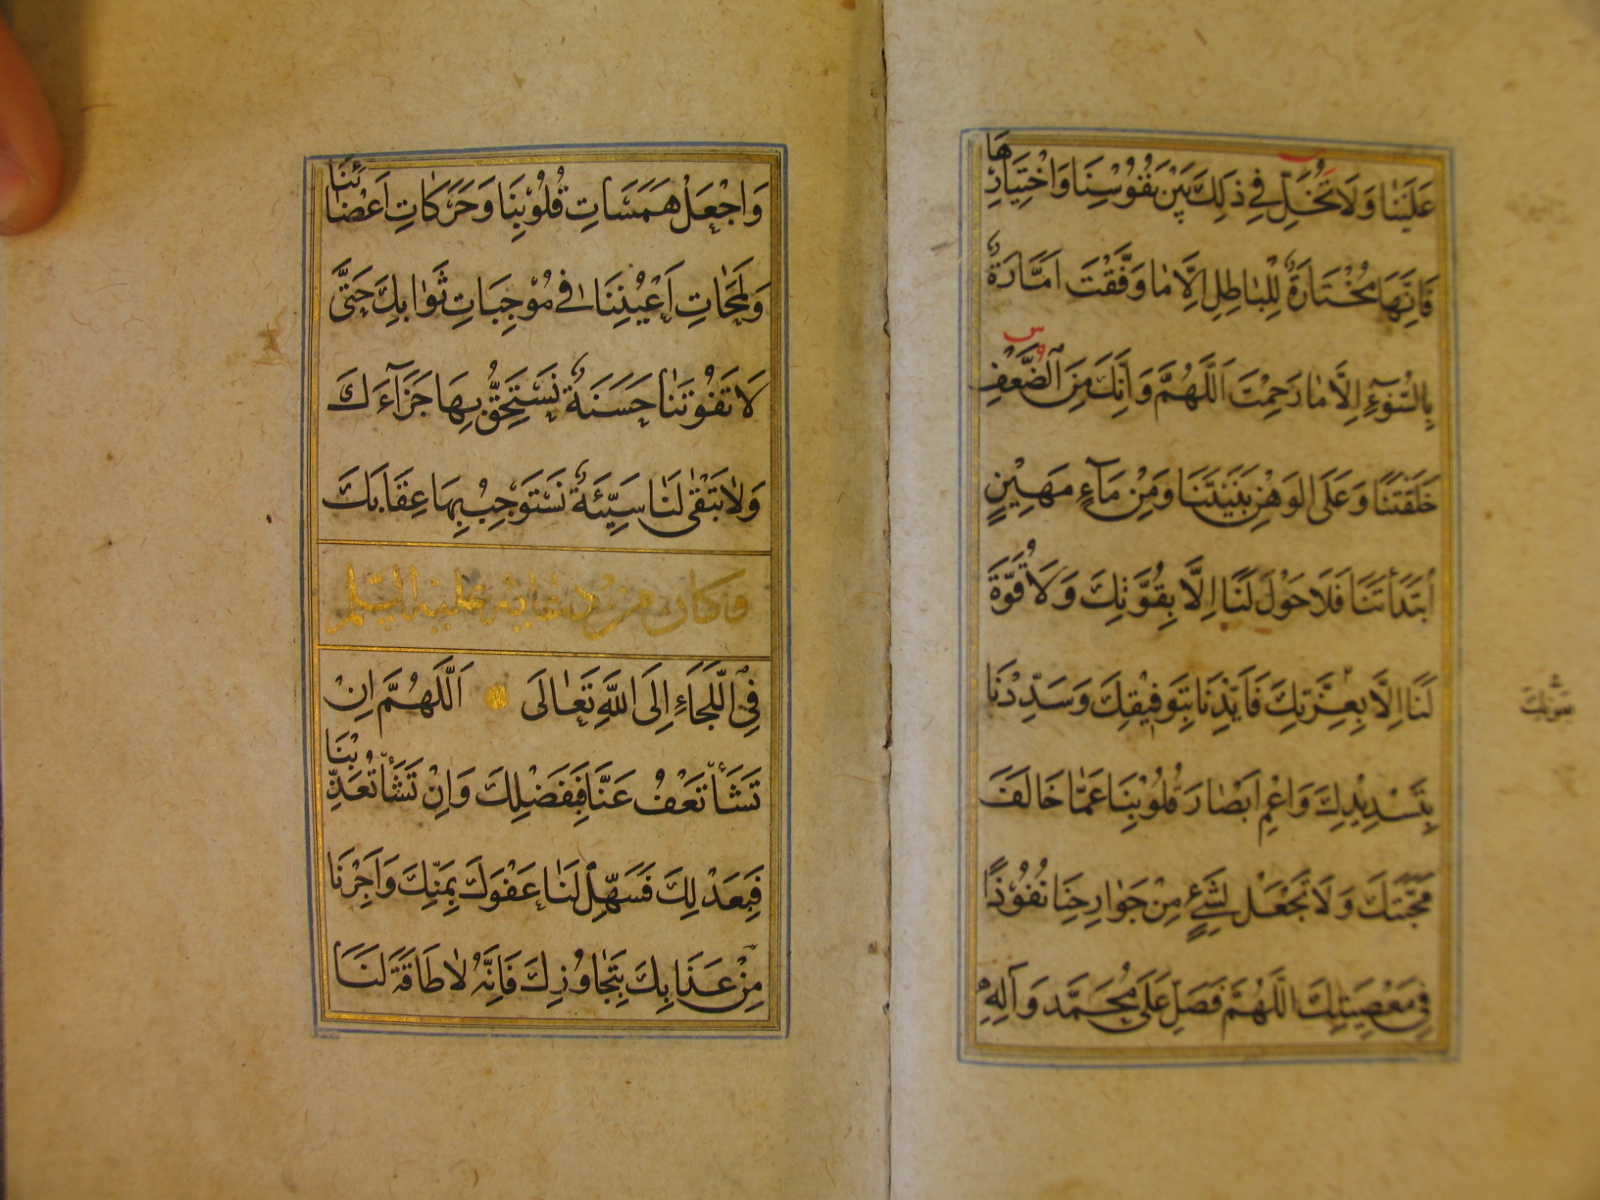 عَلَيْنَا وَلَا تُخَلِّ فِي ذٰلِكَ بَيْنَ نُفُوسِنَا وَاخْتِيَارِهَا
فَاِنَّهَا مُخْتَارَةٌ لِلْبَاطِلِ اِلَّا مَا وَفَّقْتَ اَمَّارَةٌ
بِالسُّوٓءِ اِلَّا مَا رَحِمْتَ اَللّٰهُمَّ وَاِنَّكَ مِنَ الضُّعْفِ
خَلَقْتَنَا وَعَلَى الْوَهْنِ بَنَيْتَنَا وَمِنْ مَآءٍ مَهِيْنٍ
اُبْتَدَأْتَنَا فَلَا حَوْلَ لَنَا اِلَّا بِقُوَّتِكَ وَلَا قُوَّةَ
لَنَا اِلَّا بِعِزَّتِكَ فَاَيِّدْنَا بِتَوْفِيقِكَ وَسَدِّدْنَا
بِتَسْدِيْدِكَ وَاعْمِ اَبْصَارَ قُلُوْبِنَا عَمَّا خَالَفَ
مَحَبَّتَكَ وَلَا تَجْعَلْ لِشَيْءٍ مِنْ جَوَارِحِنَا نُفُوْذًا
فِي مَعْصِيَتِكَ اَللّٰهُمَّ فَصَلِّ عَلَى مُحَمَّدٍ وَآلِهِ
وَاجْعَلْ هَمَسَاتِ قُلُوْبِنَا وَحَرَكَاتِ اَعْضَائِنَا
وَلَمَحَاتِ اَعْيُنِنَا فِي مُوْجِبَاتِ ثَوَابِكَ حَتَّى
لَا تَفُوْتَنَا حَسَنَةٌ نَسْتَحِقُّ بِهَا جَزَآءَكَ
وَلَا تَبْقٰى لَنَا سَيِّئَةٌ نَسْتَوْجِبُ بِهَا عِقَابَكَ
وكان من دعائه عليه السلم
فِي اللَّجَاءِ اِلَى اللّٰهِ تَعَالَى اَللّٰهُمَّ اِنْ
تَشَأْ تَعْفُ عَنَّا فَبِفَضْلِكَ وَاِنْ تَشَأْ تُعَذِّبْنَا
فَبِعَدْلِكَ فَسَهِّلْ لَنَا عَفْوَكَ بِمَنِّكَ وَاَجِرْنَا
مِنْ عَذَابِكَ بِتَجَاوُزِكَ فَاِنَّهُ لَا طَاقَةَ لَنَا